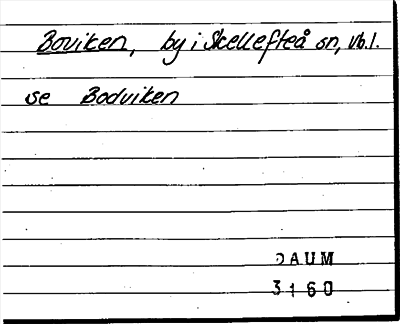 Boviken, by i Skellefteå sn, Vb.l.
se Bodviken
DAUM
3160